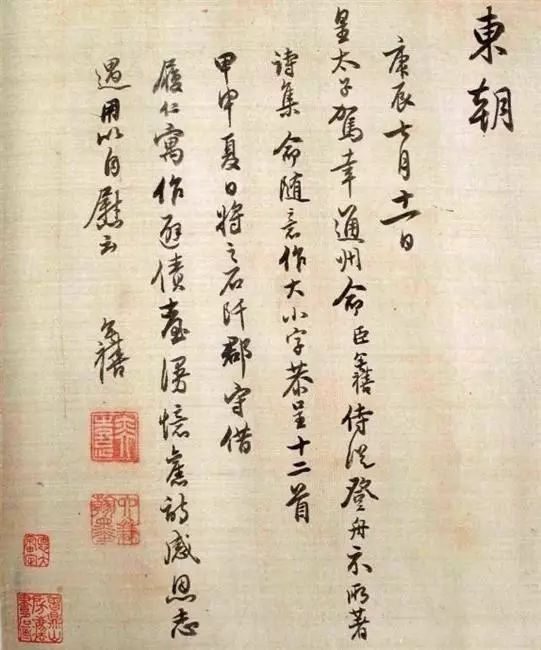 東朝
庚辰七月十一日
皇太子駕幸通州命臣奕禧侍從登舟示所著
詩集命隨意作大小字恭呈十二首
甲申夏日將之石阡郡守借
履仁寓作避債臺漫憶舊詩感恩志
遇用以自慰云 奕禧